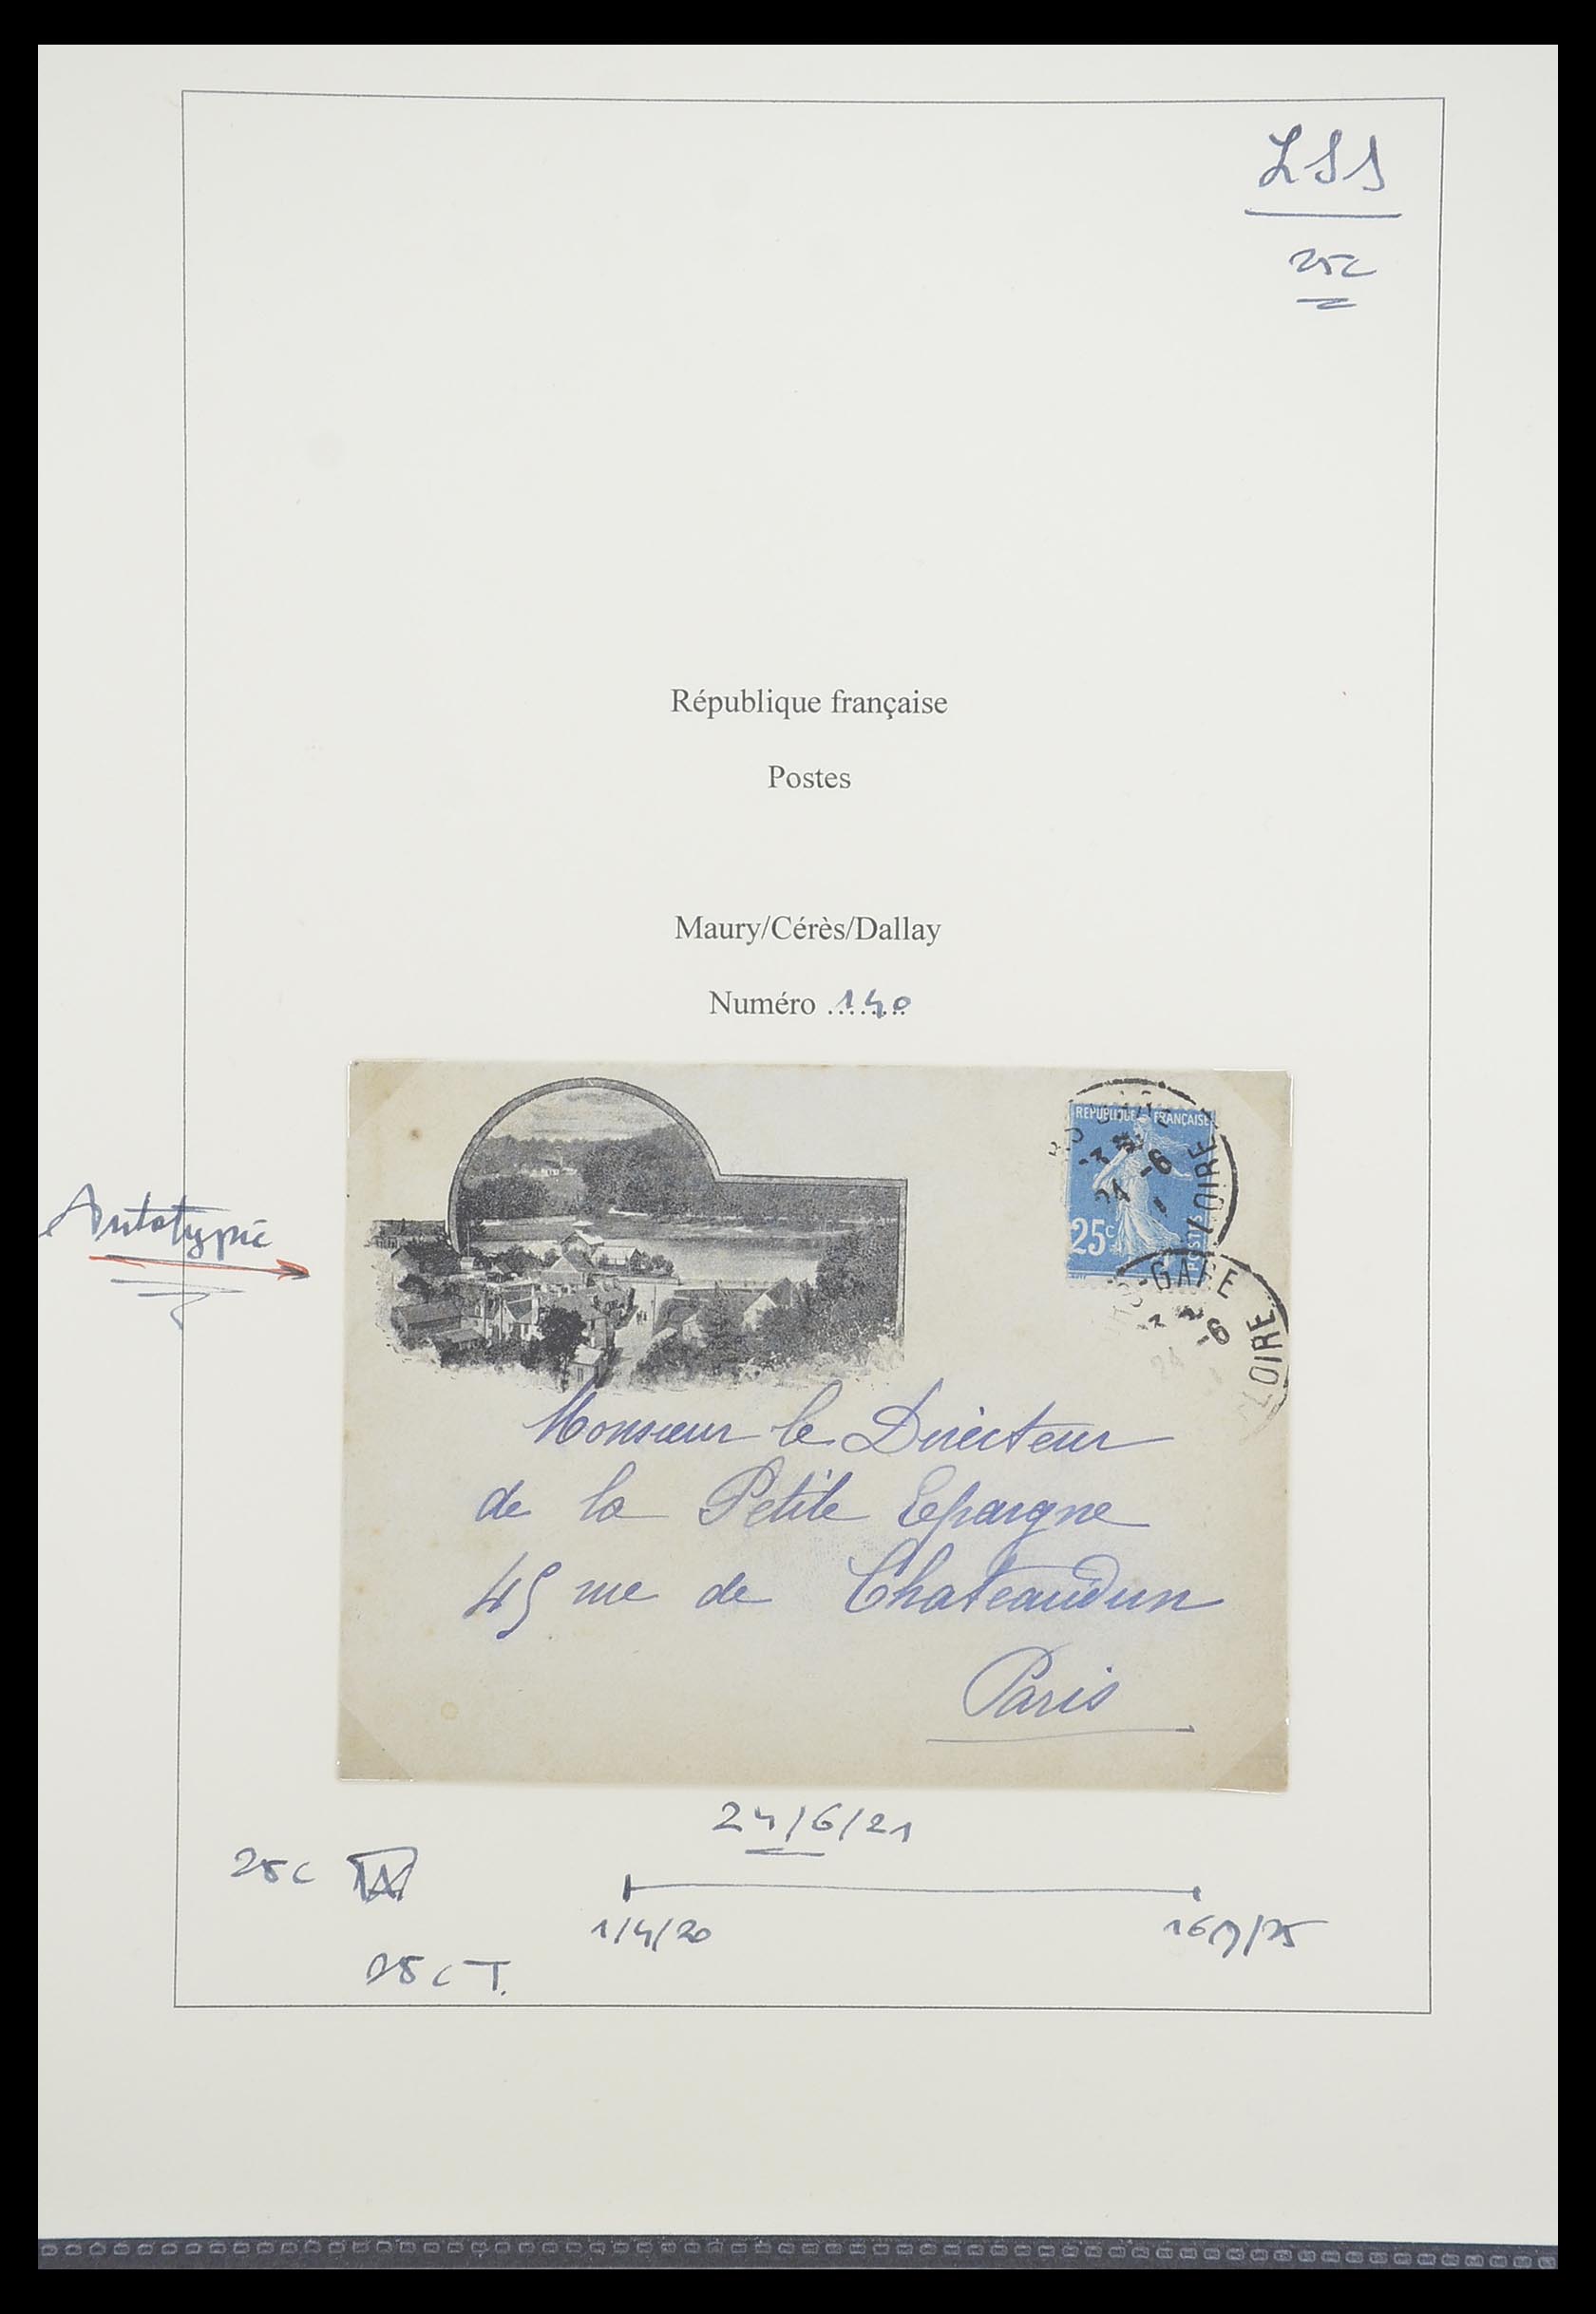 LSS
25c
République française
Postes
Maury/Cérès/Dallay
Numéro ....140
REPUBLIQUE FRANÇAISE
-6
24
LOIRE
25c
POSTES
GARE
-6
24
LOIRE
Autotypie
Monsieur le Directeur
de la Petite Epargne
45 rue de Chateaudun
Paris
24/6/21
25c
1/4/20
25c T.